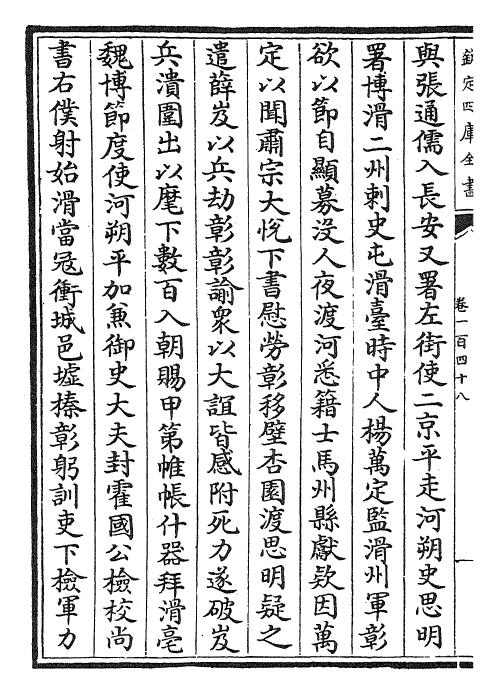 欽定四庫全書
卷一百四十八
與張通儒入長安又署左街使二京平走河朔史思明
署博滑二州刺史屯滑臺時中人楊萬定監滑州軍彰
欲以節自顯募沒人夜渡河悉籍士馬州縣獻欵因萬
定以聞肅宗大悅下書慰勞彰移壁杏園渡思明疑之
遣薛岌以兵劫彰彰諭衆以大誼皆感附死力遂破岌
兵潰圍出以麾下數百入朝賜甲第帷帳什器拜滑亳
魏博節度使河朔平加兼御史大夫封霍國公檢校尚
書右僕射始滑當冦衝城邑墟榛彰躬訓吏下檢軍力